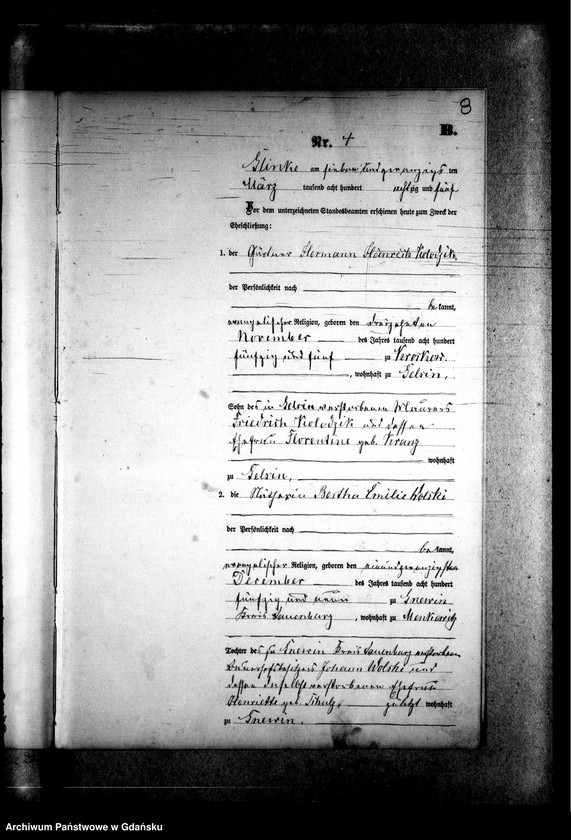 8
B.
Nr. 4
Glinke am sieben und zwanzigsten
März tausend acht hundert achtzig und fünf
Vor dem unterzeichneten Standesbeamten erschienen heute zum Zweck der
Eheschließung:
1. der Gärtner Hermann Heinrich Kolodzik
der Persönlichkeit nach
bekannt,
evangelischer Religion, geboren den dreizehnten
November des Jahres tausend acht hundert
fünfzig und fünf zu
, wohnhaft zu Gelsin,
Sohn des in Gelsin verstorbenen Maurers
Friedrich Kolodzik und dessen
Ehefrau Florentine geb. Kranz
wohnhaft
zu Gelsin,
2. die Nätherin Bertha Emilie Wolski
der Persönlichkeit nach
bekannt,
evangelischer Religion, geboren den einundzwanzigsten
December des Jahres tausend acht hundert
fünfzig und neun zu Gnewin
Kreis Lauenburg, wohnhaft zu
Tochter des zu Gnewin Kreis Lauenburg verstorbenen
Bauerhofsbesitzers Johann Wolski und
dessen daselbst verstorbenen Ehefrau
Henriette geb. Schulz, zuletzt wohnhaft
zu Gnewin.
Archiwum Państwowe w Gdańsku